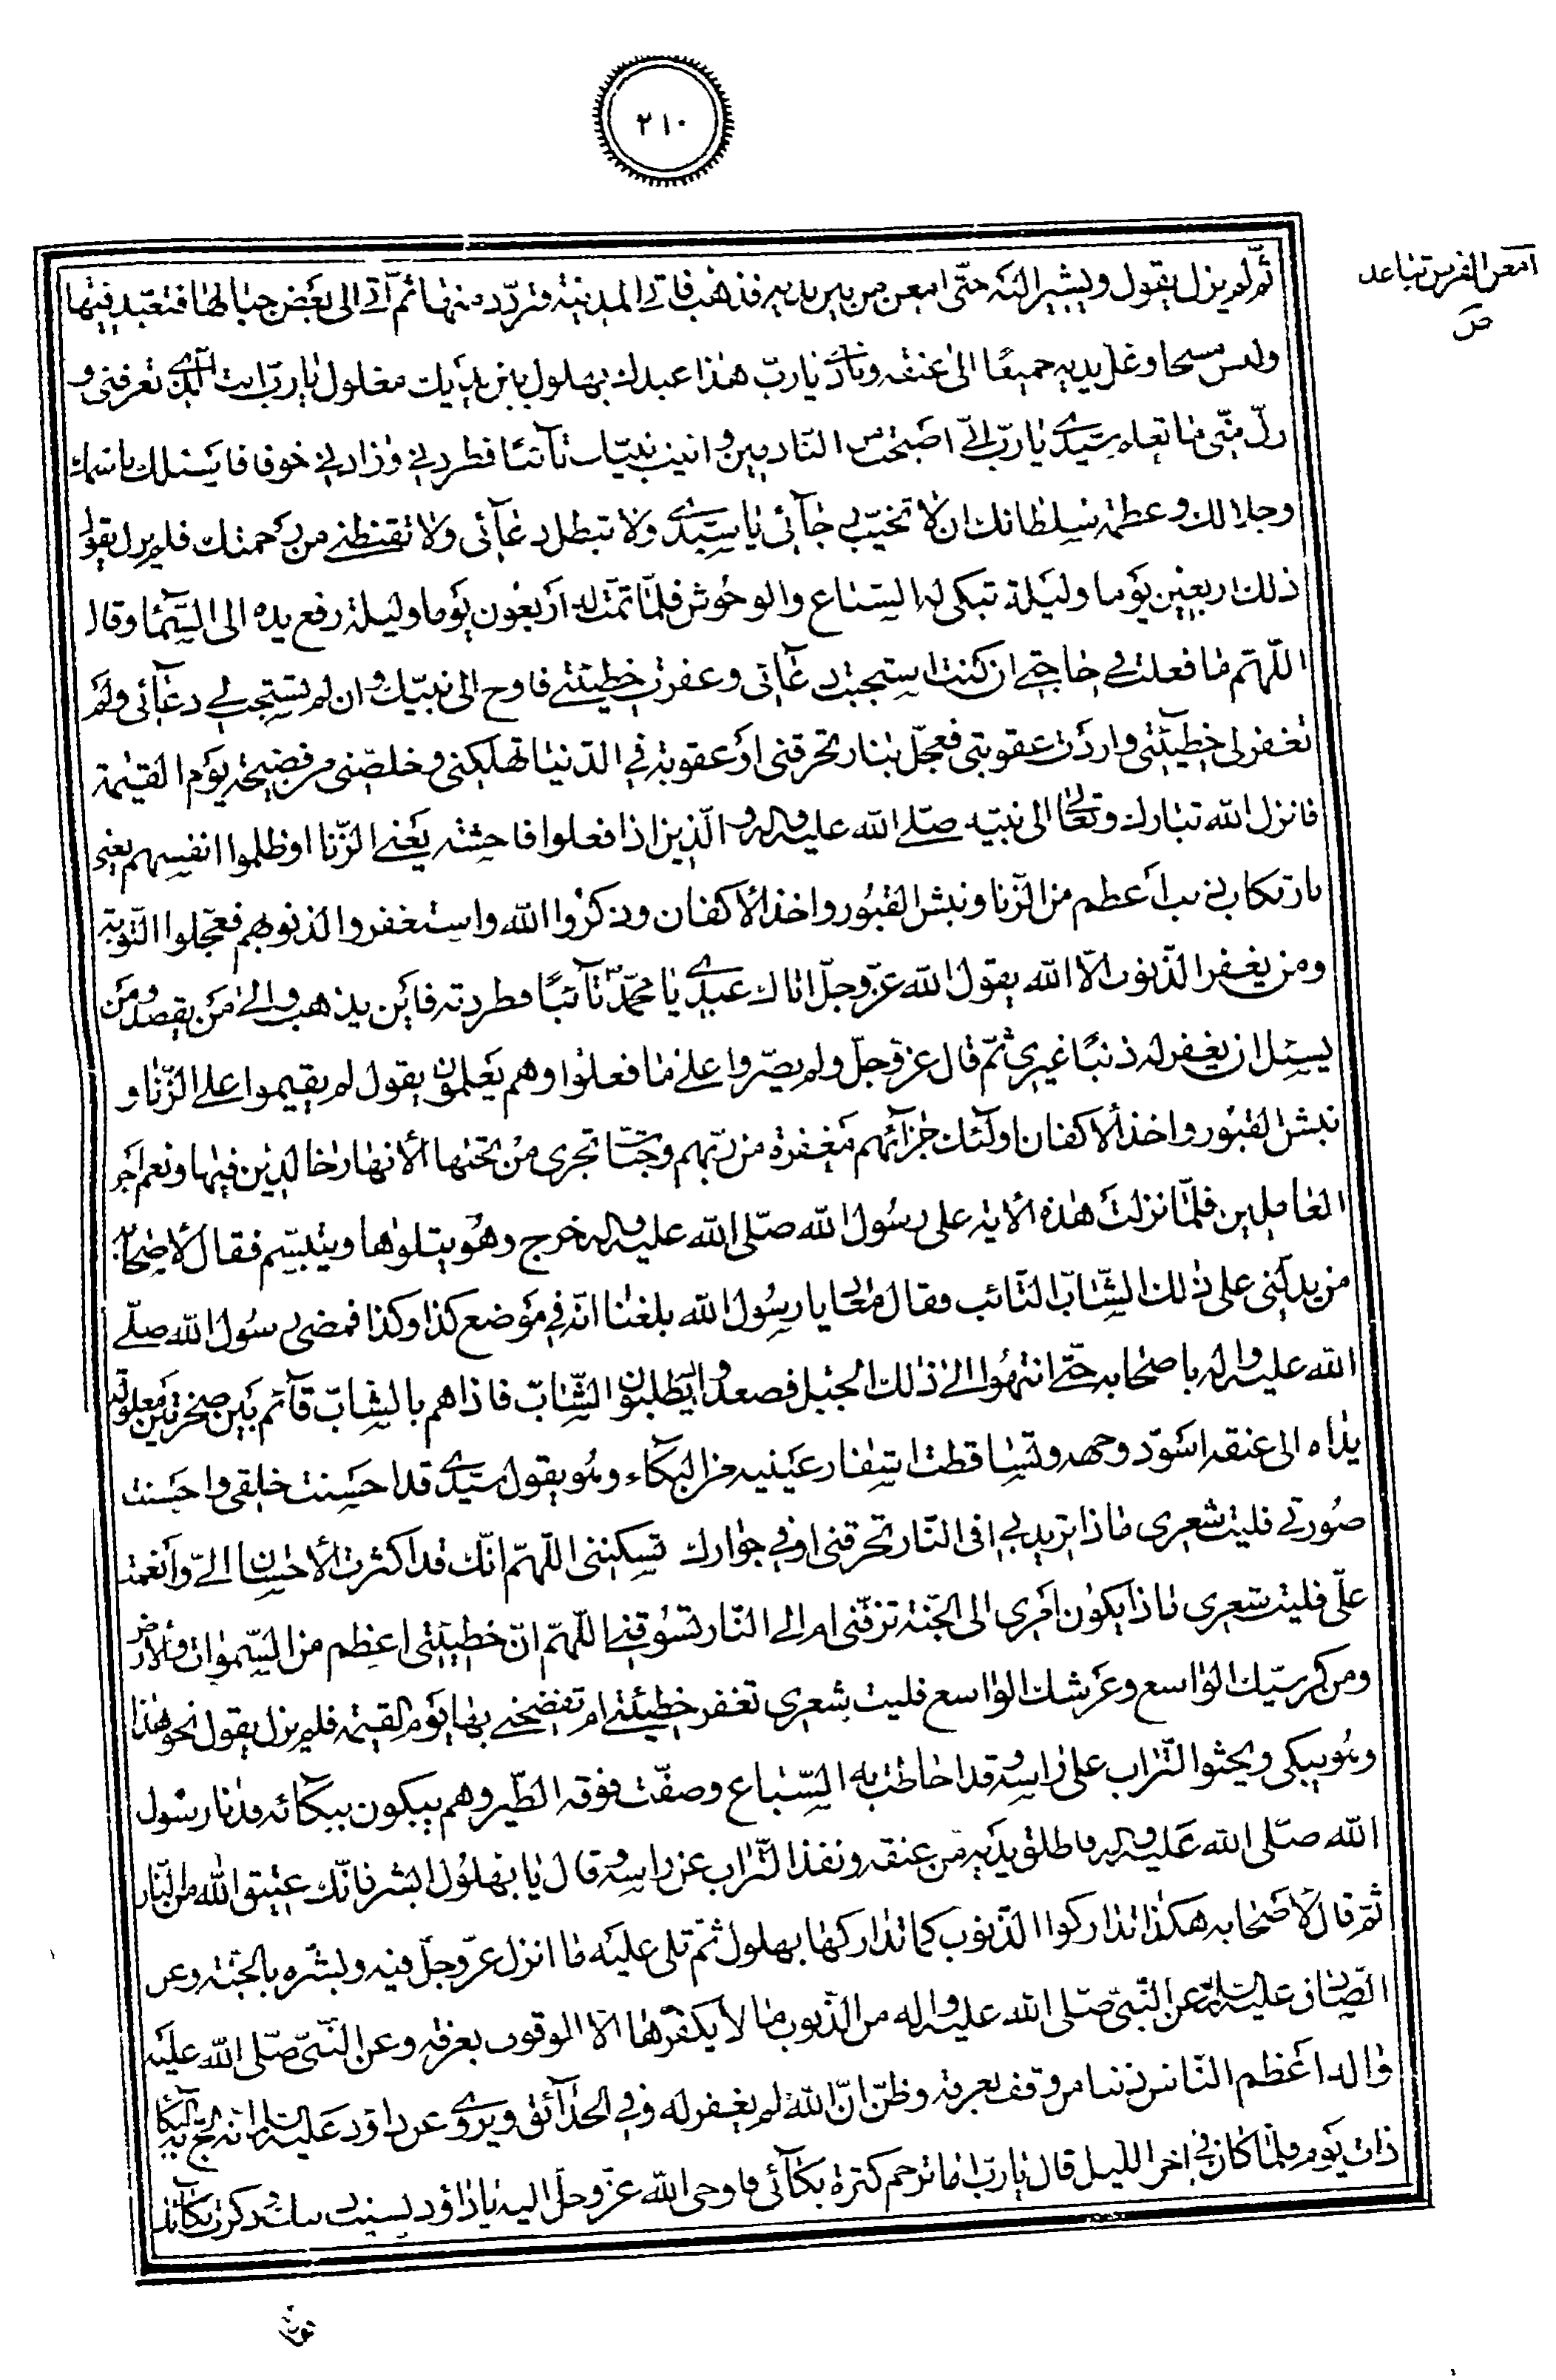 ٢١٠
امعن الفرس تباعد
ص
ثم لم يزل يقول ويشير اليه حتّى امعن من بين يديه فذهب فاتى المدينة فتزوّد منها ثم اتى الى بعض جبالها فتعبّد فيها
ولبس مسحا وغل يديه جميعًا الى عنقه ونادى يا ربّ هذا عبدك بهلول بين يديك مغلول يا ربّ انت الّذى تعرفنى و
زلّ منّى ما تعلم سيّدى يا ربّ انّى اصبحت من النّادمين واتيت نبيّك تآئبًا فطردنى وزادنى خوفا فاسئلك باسمك
وجلالك وعظمة سلطانك ان لا تخيّب رجآئى يا سيّدى ولا تبطل دعآئى ولا تقنطنى من رحمتك فلم يزل يقول
ذلك اربعين يوما وليلة تبكى له السّباع والوحوش فلمّا تمّت له اربعون يوما وليلة رفع يده الى السّمآء وقال
اللّهمّ ما فعلت فى حاجتى ان كنت استجبت دعآئى وغفرت خطيئتى فاوح الى نبيّك وان لم تستجب لى دعآئى ولم
تغفر لى خطيئتى واردت عقوبتى فعجّل بنار تحرقنى او عقوبة فى الدّنيا تهلكنى وخلصنى من فضيحة يوم القيٰمة
فانزل الله تبارك وتعالى الى نبيّه صلّى الله عليه واله والّذين اذا فعلوا فاحشة يعنى الزّنا او ظلموا انفسهم يعنى
بارتكاب ذنب اعظم من الزّنا ونبش القبور واخذ الاكفان وذكروا الله واستغفروا لذنوبهم فعجّلوا التّوبة
ومن يغفر الذّنوب الّا الله يقول الله عزّ وجلّ اتاك عبدى يا محمّد تآئبًا فطردته فاين يذهب والى من يقصد ومن
يسئل ان يغفر له ذنبًا غيرى ثمّ قال عزّ وجلّ ولم يصّروا على ما فعلوا وهم يعلمون يقول لم يقيموا على الزّنا و
نبش القبور واخذ الاكفان اولئك جزآئهم مغفرة من ربّهم وجنّات تجرى من تحتها الانهار خالدين فيها ونعم اجر
العاملين فلمّا نزلت هذه الاية على رسول الله صلّى الله عليه واله خرج وهو يتلوها ويتبسّم فقال لاصحابه
من يدلّنى على ذلك الشّابّ التّائب فقال معاذ يا رسول الله بلغنا انّه فى موضع كذا وكذا فمضى رسول الله صلّى
الله عليه واله باصحابه حتّى انتهوا الى ذلك الجبل فصعدوا يطلبون الشّابّ فاذا هم بالشّابّ قآئم بين صخرتين مغلولة
يداه الى عنقه اسودّ وجهه وتساقطت اشفار عينيه من البكآء وهو يقول سيّدى قد احسنت خلقى واحسنت
صورتى فليت شعرى ماذا تريد بى افى النّار تحرقنى او فى جوارك تسكننى اللّهمّ انّك قد اكثرت الاحسان الىّ وانعمت
علىّ فليت شعرى ماذا يكون امرى الى الجنّة تزفّنى ام الى النّار تسوقنى اللّهمّ انّ خطيئتى اعظم من السّموات والارض
ومن كرسيّك الواسع وعرشك الواسع فليت شعرى تغفر خطيئتى ام تفضحنى بها يوم القيمة فلم يزل يقول نحو هذا
وهو يبكى ويحثوا التّراب على راسه وقد احاطت به السّباع وصفّت فوقه الطّير وهم يبكون ببكائه فدنا رسول
الله صلّى الله عليه واله فاطلق يديه من عنقه ونفذ التّراب عن راسه وقال يا بهلول ابشر فانّك عتيق الله من النّار
ثمّ قال لاصحابه هكذا تداركوا الذّنوب كما تداركها بهلول ثمّ تلى عليه ما انزل عزّ وجلّ فيه وبشّره بالجنّة وعن
الصّادق عليه السّلام عن النّبىّ صلّى الله عليه واله من الذّنوب ما لا يكفّرها الّا الوقوف بعرفة وعن النّبىّ صلّى الله عليه
واله اعظم النّاس ذنبا من وقف بعرفة وظنّ انّ الله لم يغفر له وفى الحدآئق ويروى عن داود عليه السلام انه لجّ به البكآء
ذات يوم فلمّا كان فى اخر الليل قال يا ربّ اما ترحم كثرة بكآئى فاوحى الله عزّ وجلّ اليه يا داود نسيت ذنبك وذكرت بكآئك